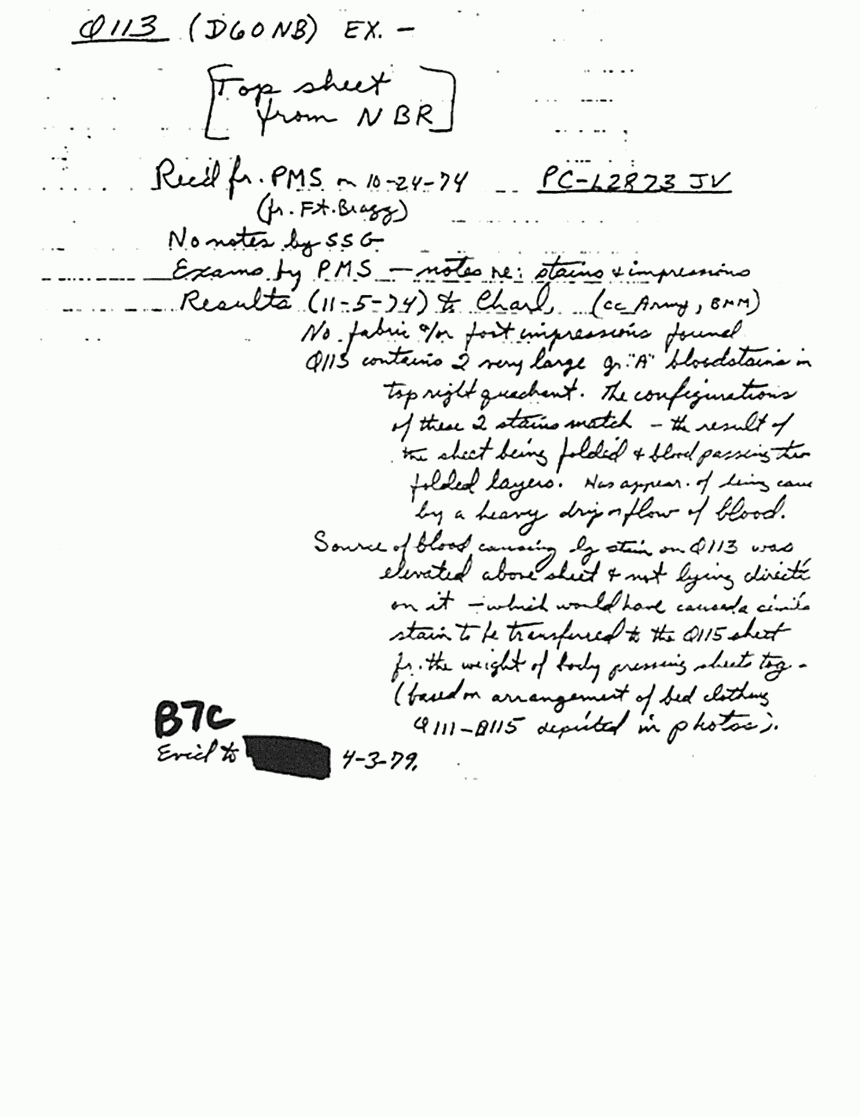 Q113 (D60NB) EX. -
[Top sheet
from NBR]
Rec'd fr. PMS on 10-24-74 PC-L2873 JV
(fr. Ft. Bragg)
No notes by SSG
Exams by PMS - notes re: stains & impressions
Results (11-5-74) to Charl. (cc Army, BMM)
No fabric &/or foot impressions found
Q113 contains 2 very large gr. "A" bloodstains in
top right quadrant. The configurations
of these 2 stains match - the result of
the sheet being folded & blood passing thru
folded layers. Has appear. of being caus
by a heavy drip or flow of blood.
Source of blood causing lg stain on Q113 was
elevated above sheet & not lying directl
on it - which would have caused a simila
stain to be transferred to the Q115 sheet
fr. the weight of body pressing sheets tog -
(based on arrangement of bed clothing
Q111-Q115 depicted in photos).
B7C
Evid to 4-3-79.